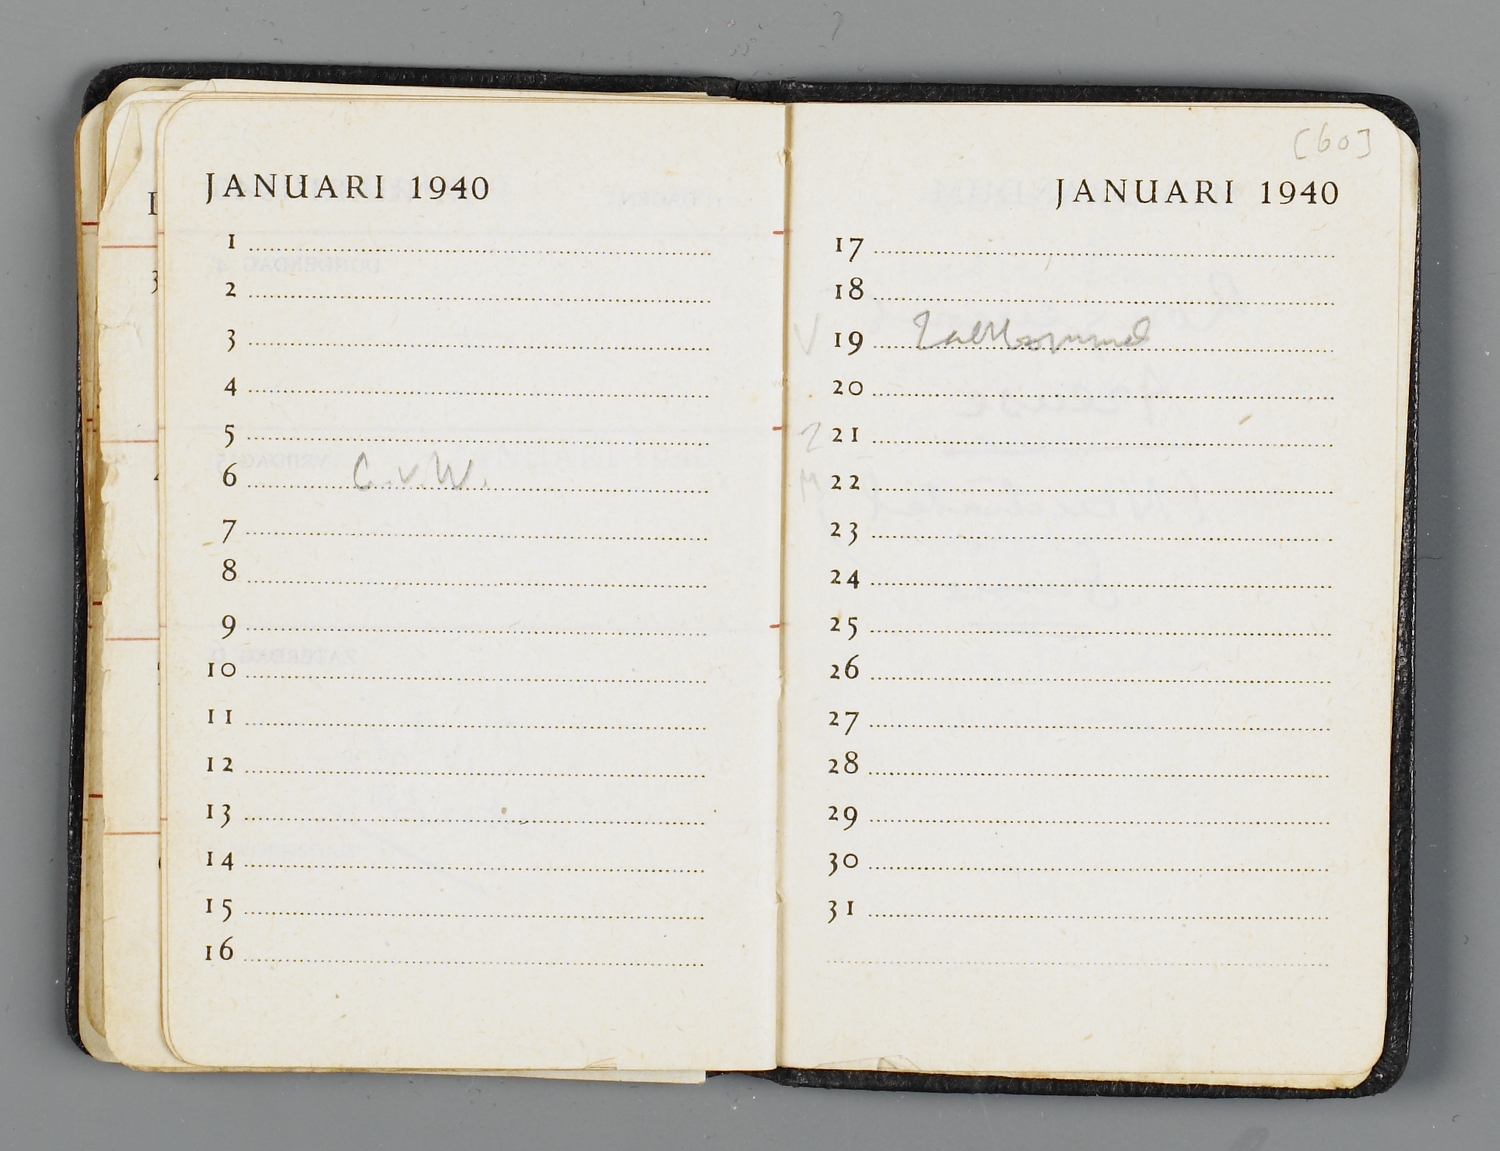 JANUARI 1940
1
2
3
4
5
6 C.v.W.
7
8
9
10
11
12
13
14
15
16
[60]
JANUARI 1940
17
18
V 19 Zaltbommel
20
Z 21
M 22
23
24
25
26
27
28
29
30
31